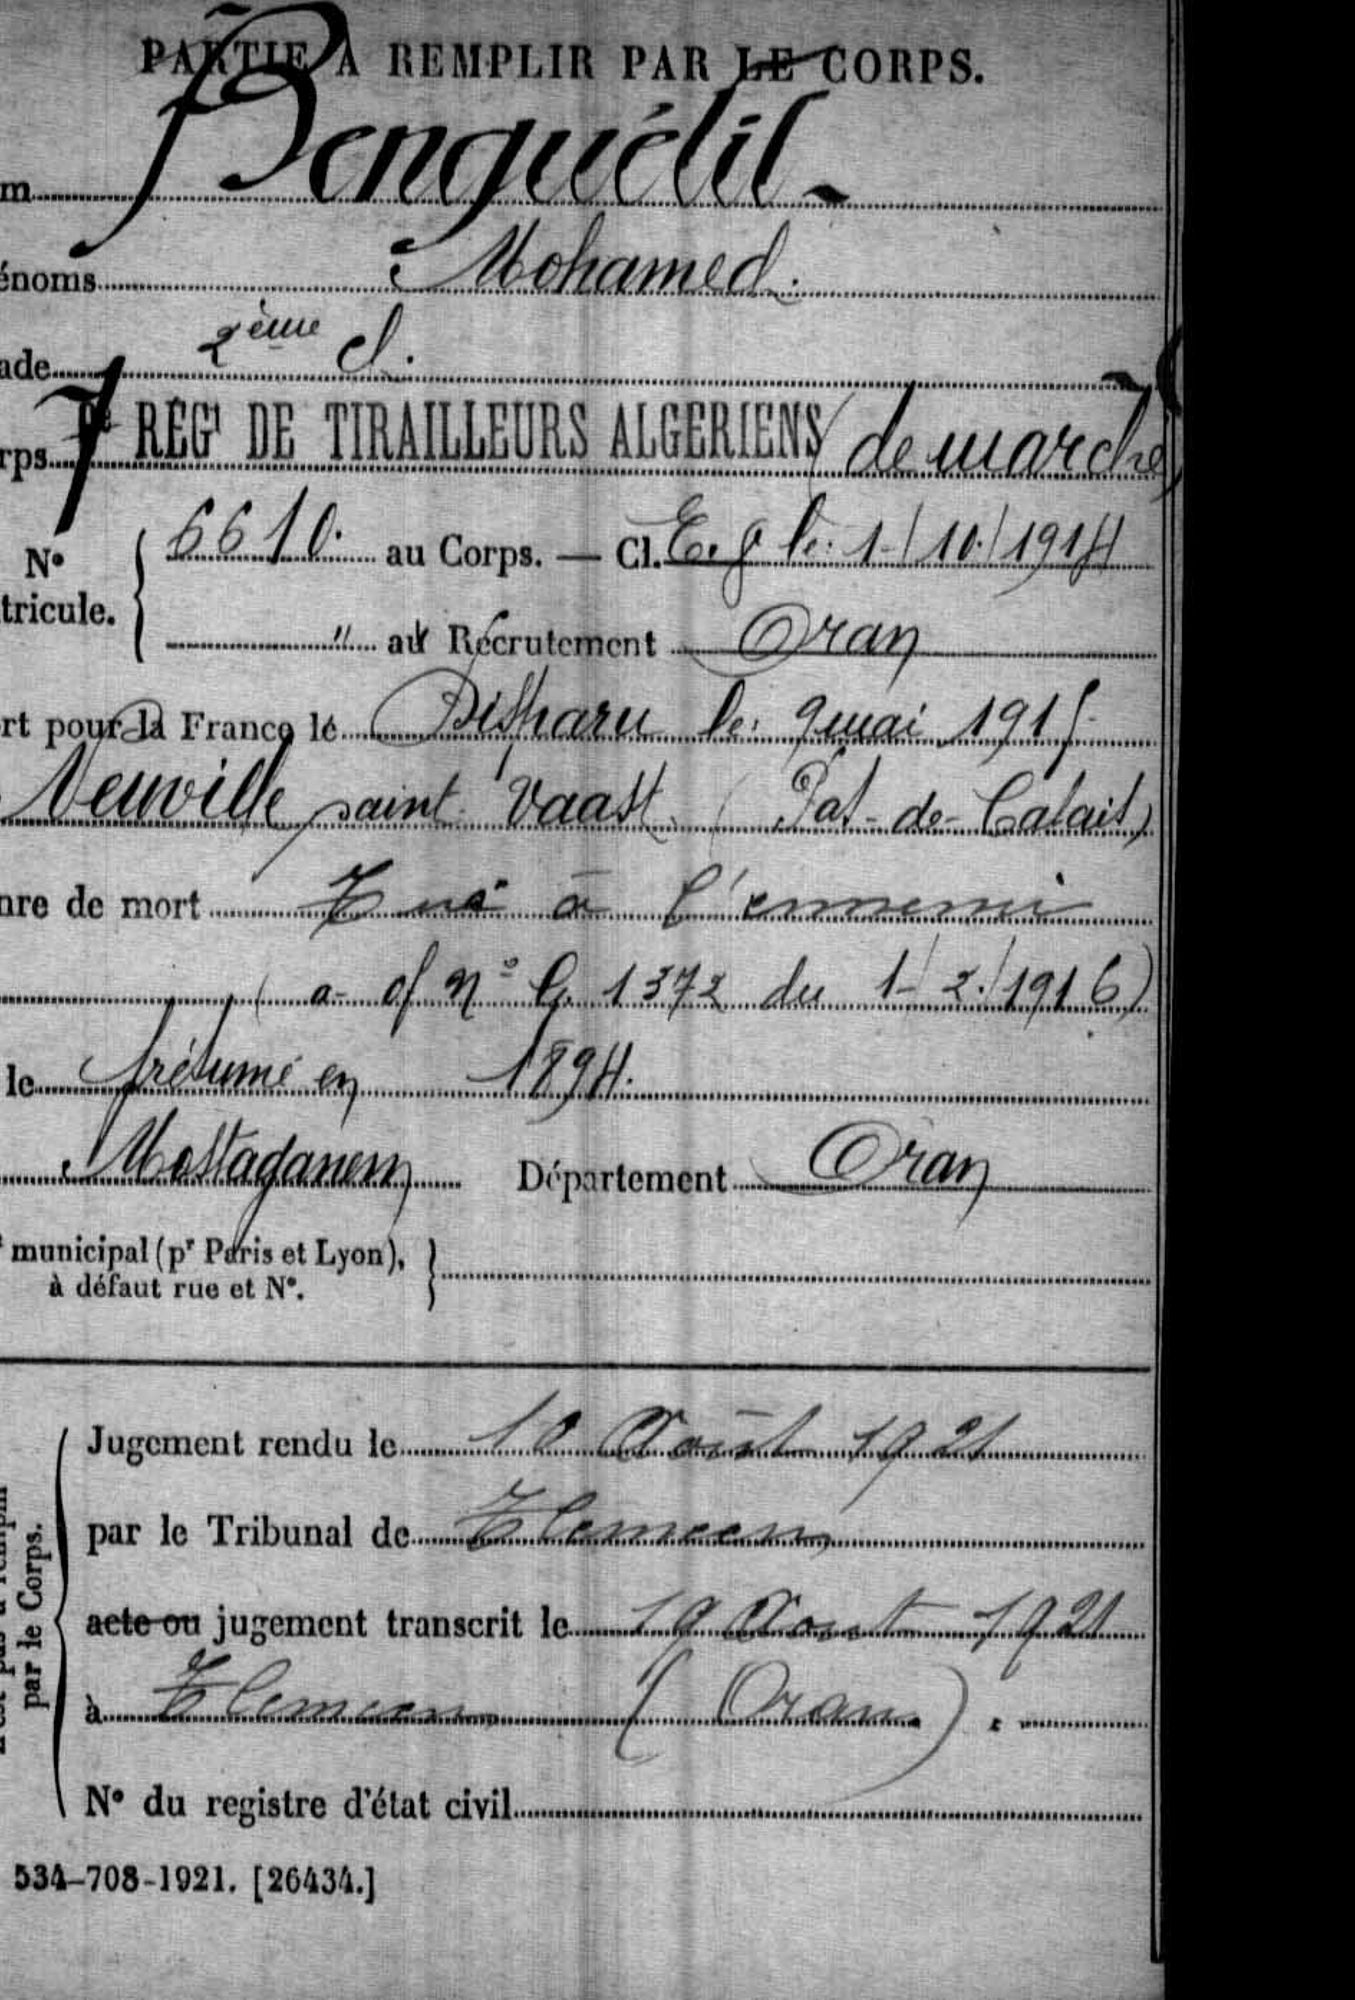 PARTIE À REMPLIR PAR LE CORPS.
m Benguétil
énoms Mohamed.
ade 2ème cl.
rps 7e RÉGt DE TIRAILLEURS ALGERIENS (de marche)
No 6610. au Corps. — Cl. E. g le: 1-/10./1914
tricule. " au Recrutement Oran
rt pour la France le Disparu le: 9 mai 1915
Neuville saint Vaast (Pas-de-Calais)
nre de mort Tué à l'ennemi
(a- of No 1372 du 1-/2./1916)
le présumé en 1894.
Mostaganem Département Oran
t municipal (pr Paris et Lyon),
à défaut rue et No.
Jugement rendu le 10 Août 1921
par le Tribunal de Tlemcen
acte ou jugement transcrit le 19 Aout 1921
à Tlemcen (Oran).
No du registre d'état civil
par le Corps.
534-708-1921. [26434.]